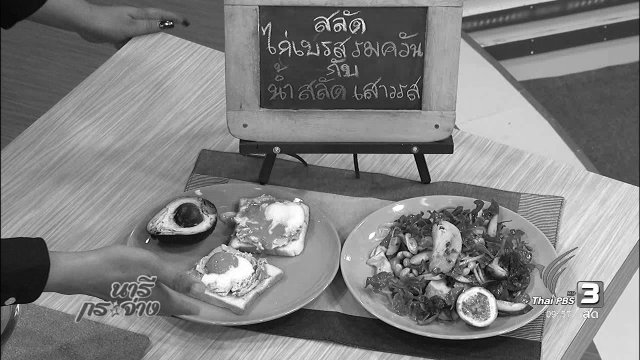 สลัด
ไก่เบรสรมควัน
กับ
น้ำสลัดเสาวรส
นารี
กระจ่าง
Thai PBS HD 3
09:51 สด